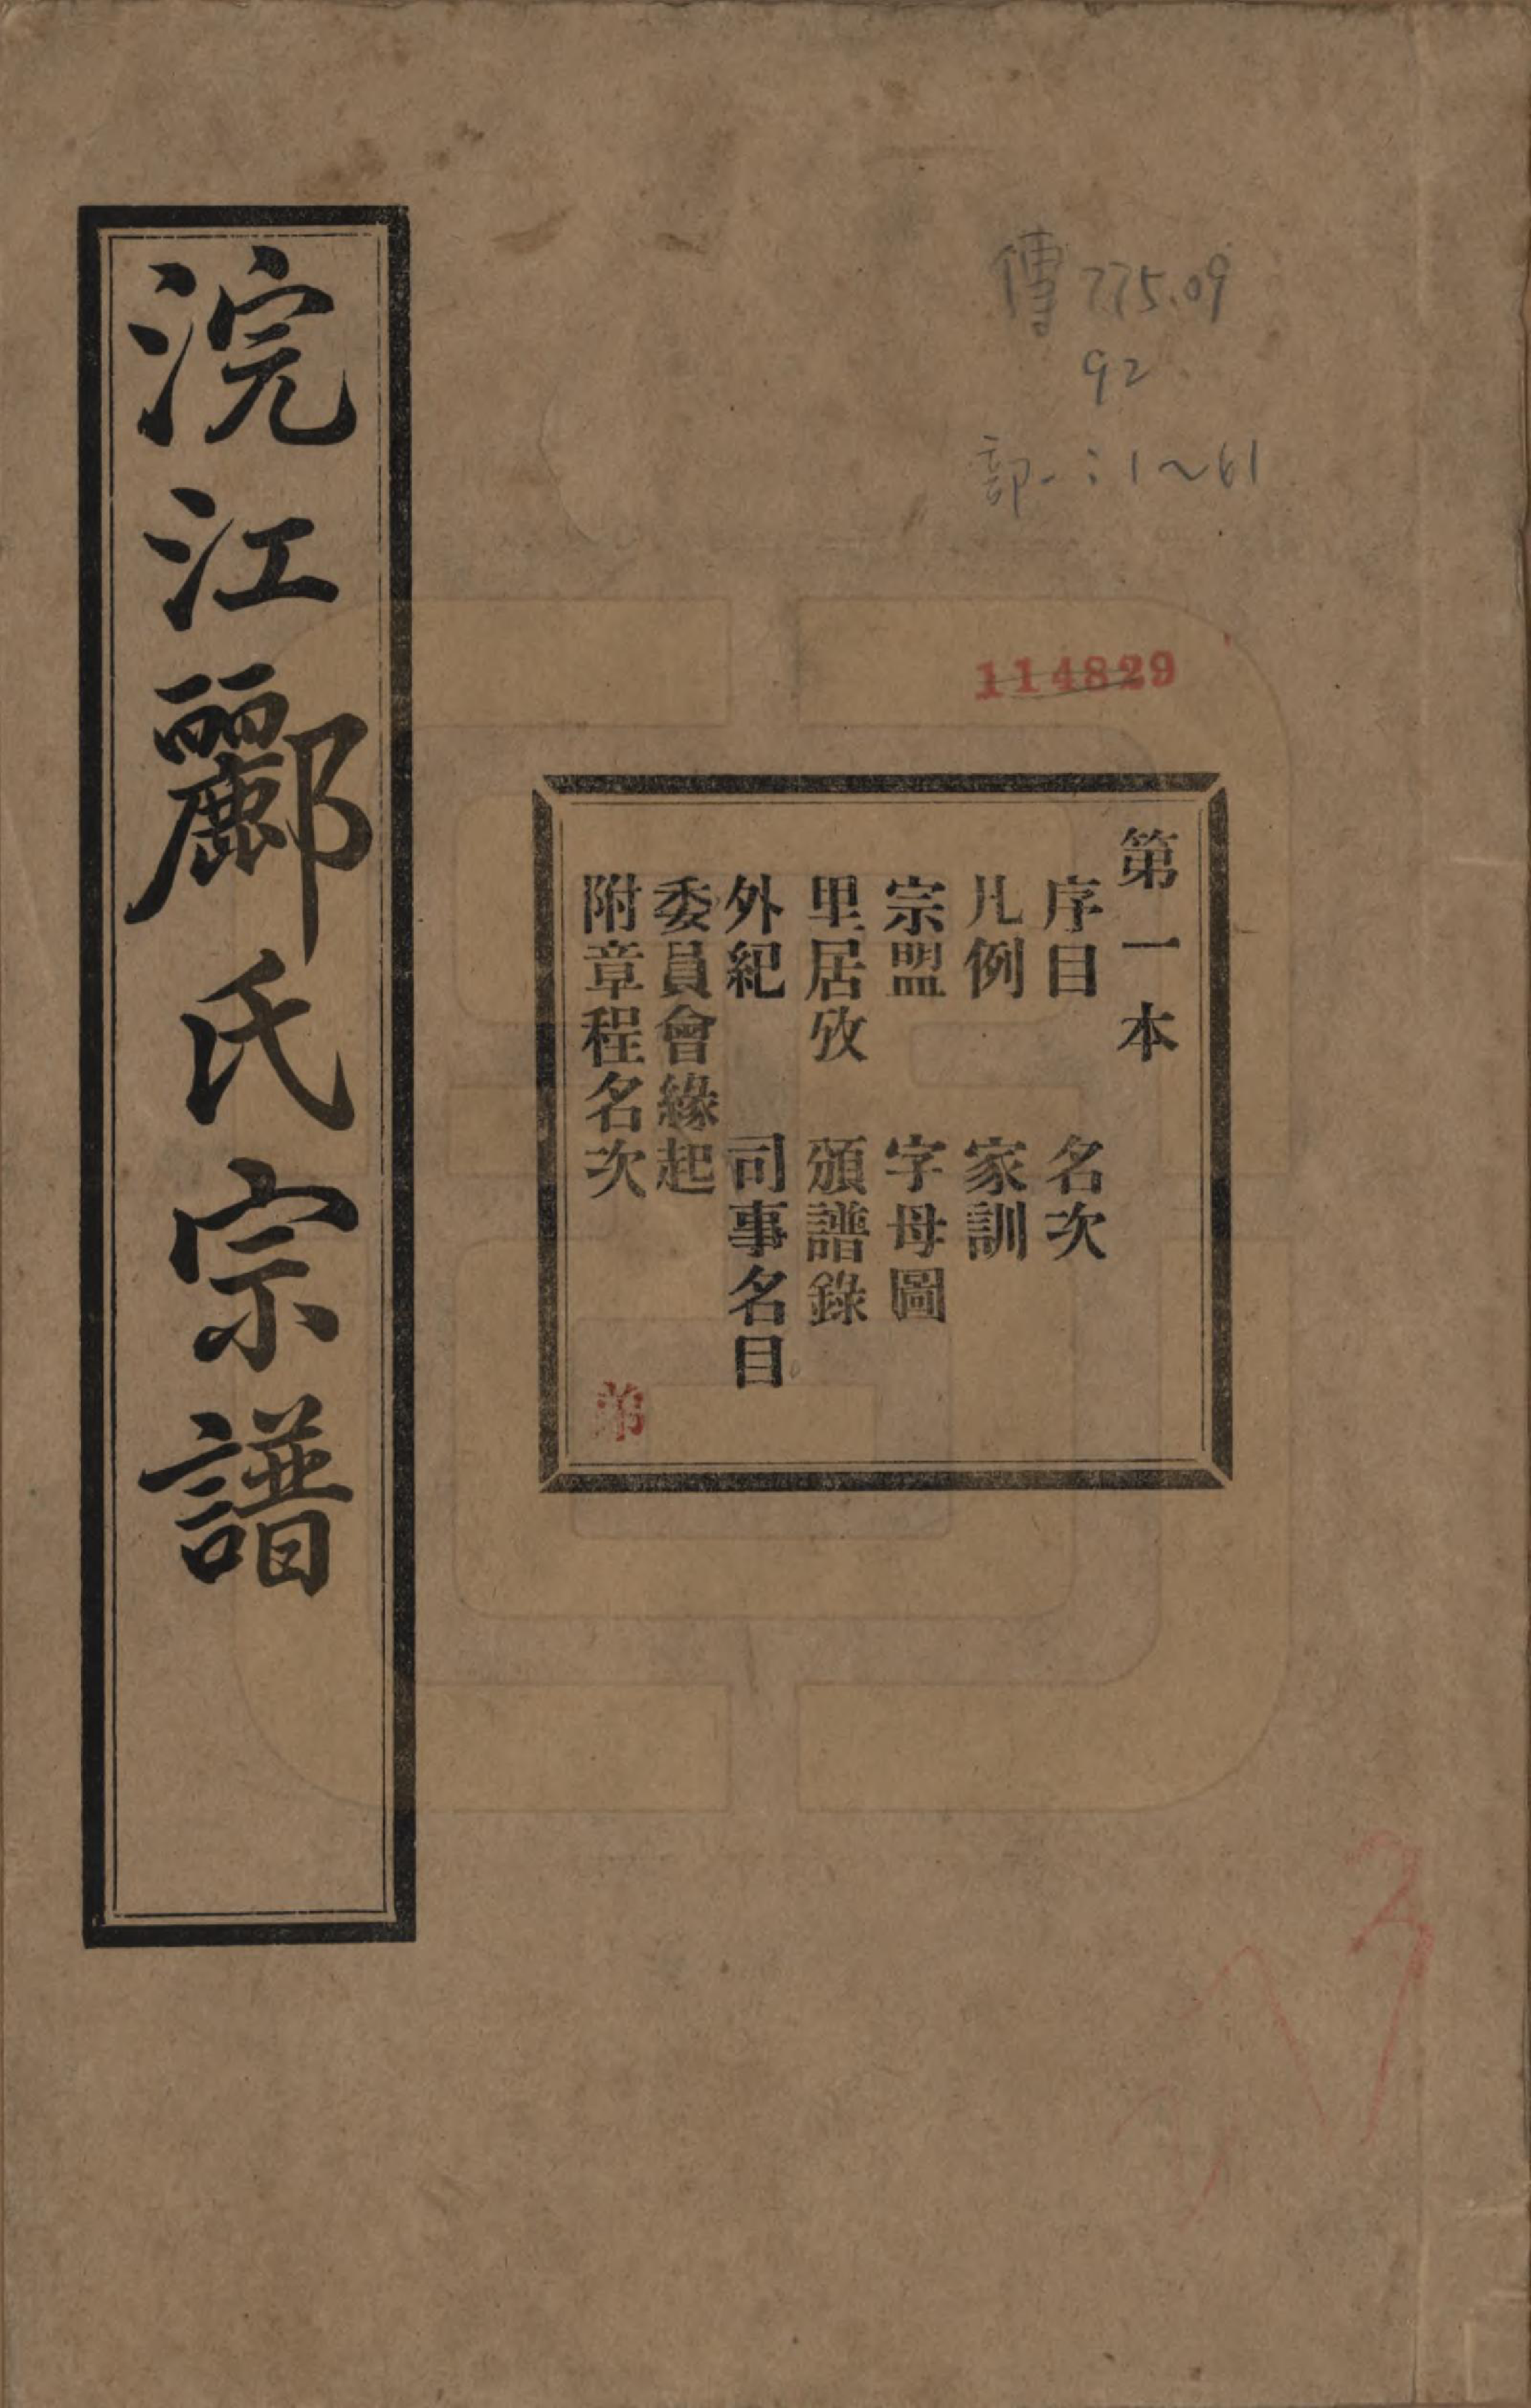 浣江酈氏宗譜
傳 775.09
92
部一:1~61
114829
第一本
序目 名次
凡例 家訓
宗盟 字母圖
里居攷 頒譜錄
外紀 司事名目
委員會緣起
附章程名次
弟